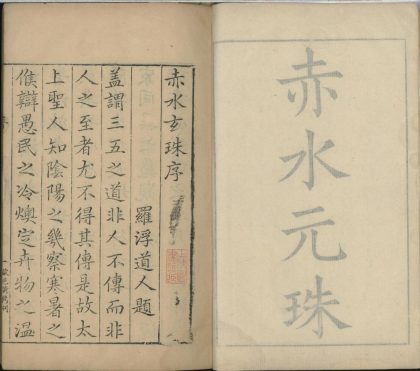 赤水元珠
赤水玄珠序
羅浮道人題
蓋謂三五之道非人不傳而非
人之至者尤不得其傳是故太
上聖人知陰陽之幾察寒暑之
候辯愚民之冷燠定卉物之溫